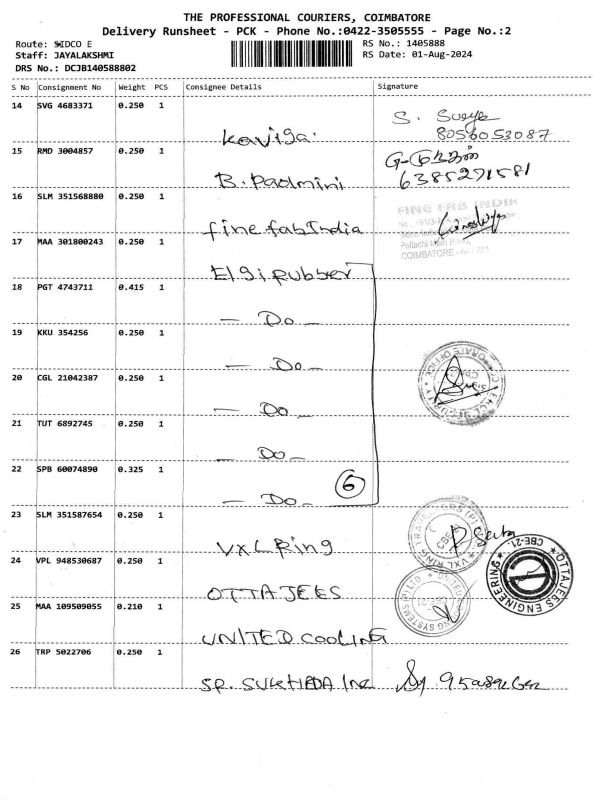 THE PROFESSIONAL COURIERS, COIMBATORE
Delivery Runsheet - PCK - Phone No.:0422-3505555 - Page No.:2
Route: SIDCO E
RS No.: 1405888
Staff: JAYALAKSHMI
RS Date: 01-Aug-2024
DRS No.: DCJB140588802
S No Consignment No Weight PCS Consignee Details Signature
14 SVG 4683371 0.250 1
Kaviga. S. Surya
8056053087
15 RMD 3004857 0.250 1
B. Padmini 6385271581
16 SLM 351568880 0.250 1
FINE FAB INDIA
fine fab India
17 MAA 301800243 0.250 1
Pollachi Main Road,
COIMBATORE - 641 021
Elgi Rubber
18 PGT 4743711 0.415 1
- Do -
19 KKU 354256 0.250 1
- Do -
20 CGL 21042387 0.250 1
CORPORATE OFFICE
CBE
- Do -
21 TUT 6892745 0.250 1
- Do -
22 SPB 60074890 0.325 1
6
- Do -
23 SLM 351587654 0.250 1
VXL Ring
CBE-21
24 VPL 948530687 0.250 1
OTTAJEES ENGINEERING
OTTAJEES
25 MAA 109509055 0.210 1
UNITED Cooling
26 TRP 5022706 0.250 1
SP. SUKHADA Inc